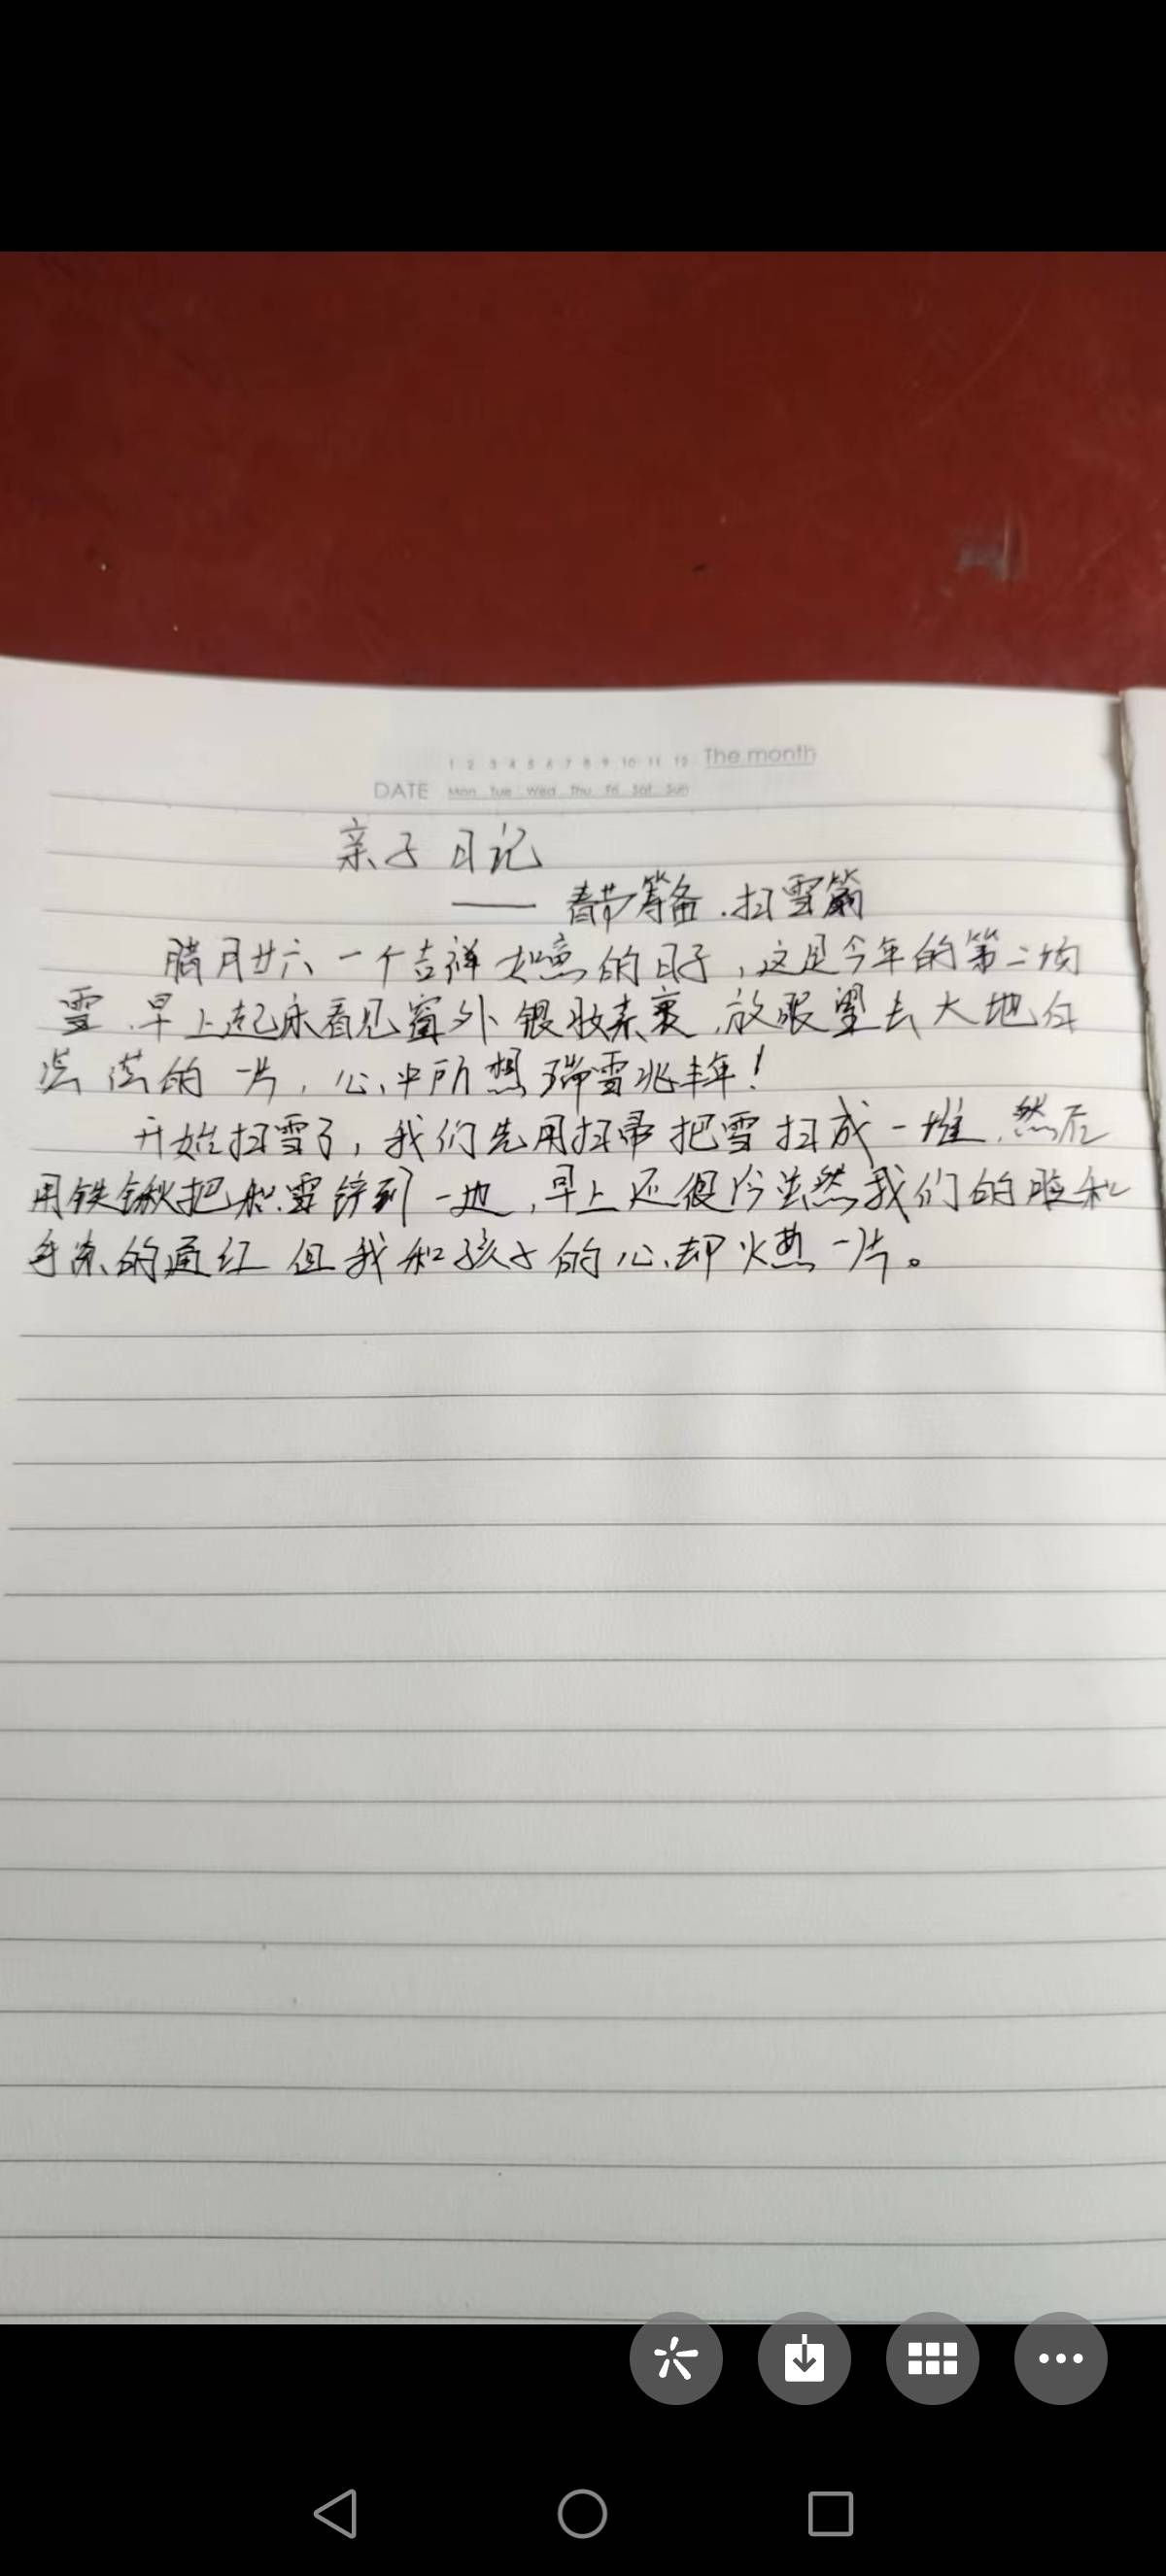 1 2 3 4 5 6 7 8 9 10 11 12 The month
DATE Mon Tue Wed Thu Fri Sat Sun
亲子日记
—— 春节筹备.扫雪篇
腊月廿六一个吉祥如意的日子,这是今年的第二场
雪.早上起床看见窗外银妆素裹.放眼望去大地白
茫茫的一片,心中所想瑞雪兆丰年!
开始扫雪了,我们先用扫帚把雪扫成一堆.然后
用铁锹把积雪铲到一边,早上还很冷虽然我们的脸和
手冻的通红但我和孩子的心却火热一片。